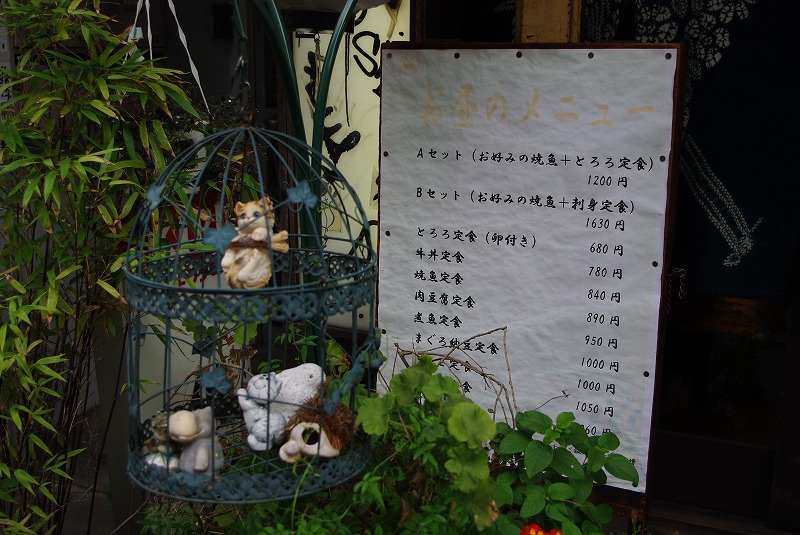 お昼のメニュー
Aセット（お好みの焼魚＋とろろ定食）
1200 円
Bセット（お好みの焼魚＋刺身定食）
1630 円
とろろ定食（卵付き） 680 円
牛丼定食 780 円
焼魚定食 840 円
肉豆腐定食 890 円
煮魚定食 950 円
まぐろ納豆定食 1000 円
定食 1000 円
食 1050 円
60 円